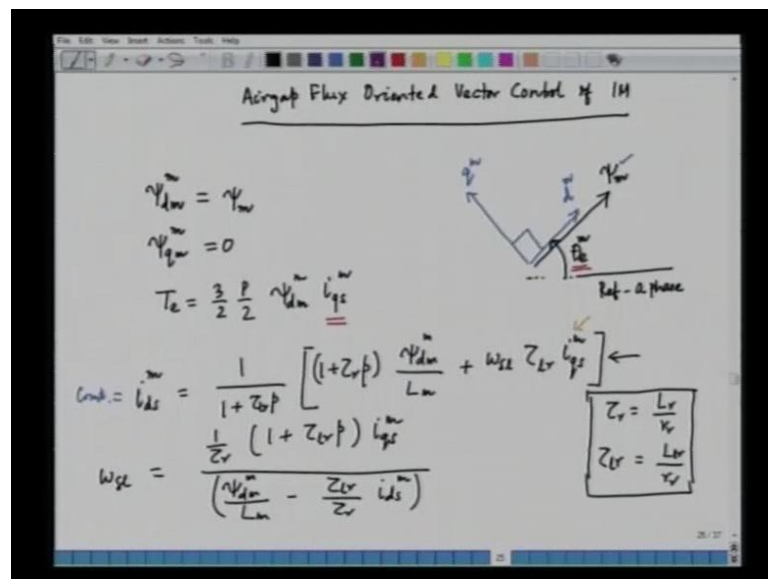 File Edit View Insert Actions Tools Help
Airgap Flux Oriented Vector Control of IM
ψ_dm^m = ψ_m
ψ_qm^m = 0
T_e = 3/2 P/2 ψ_dm^m i_qs^m
q^m
d^m
ψ_m
θ_e^m
Ref - a phase
Const. = i_ds^m = 1/(1 + τ_lr p) [(1 + τ_r p) ψ_dm^m/L_m + ω_sl τ_lr i_qs^m] ←
ω_sl = (1/τ_r (1 + τ_lr p) i_qs^m)/(ψ_dm^m/L_m - τ_lr/τ_r i_ds^m)
τ_r = L_r/r_r
τ_lr = L_lr/r_r
25